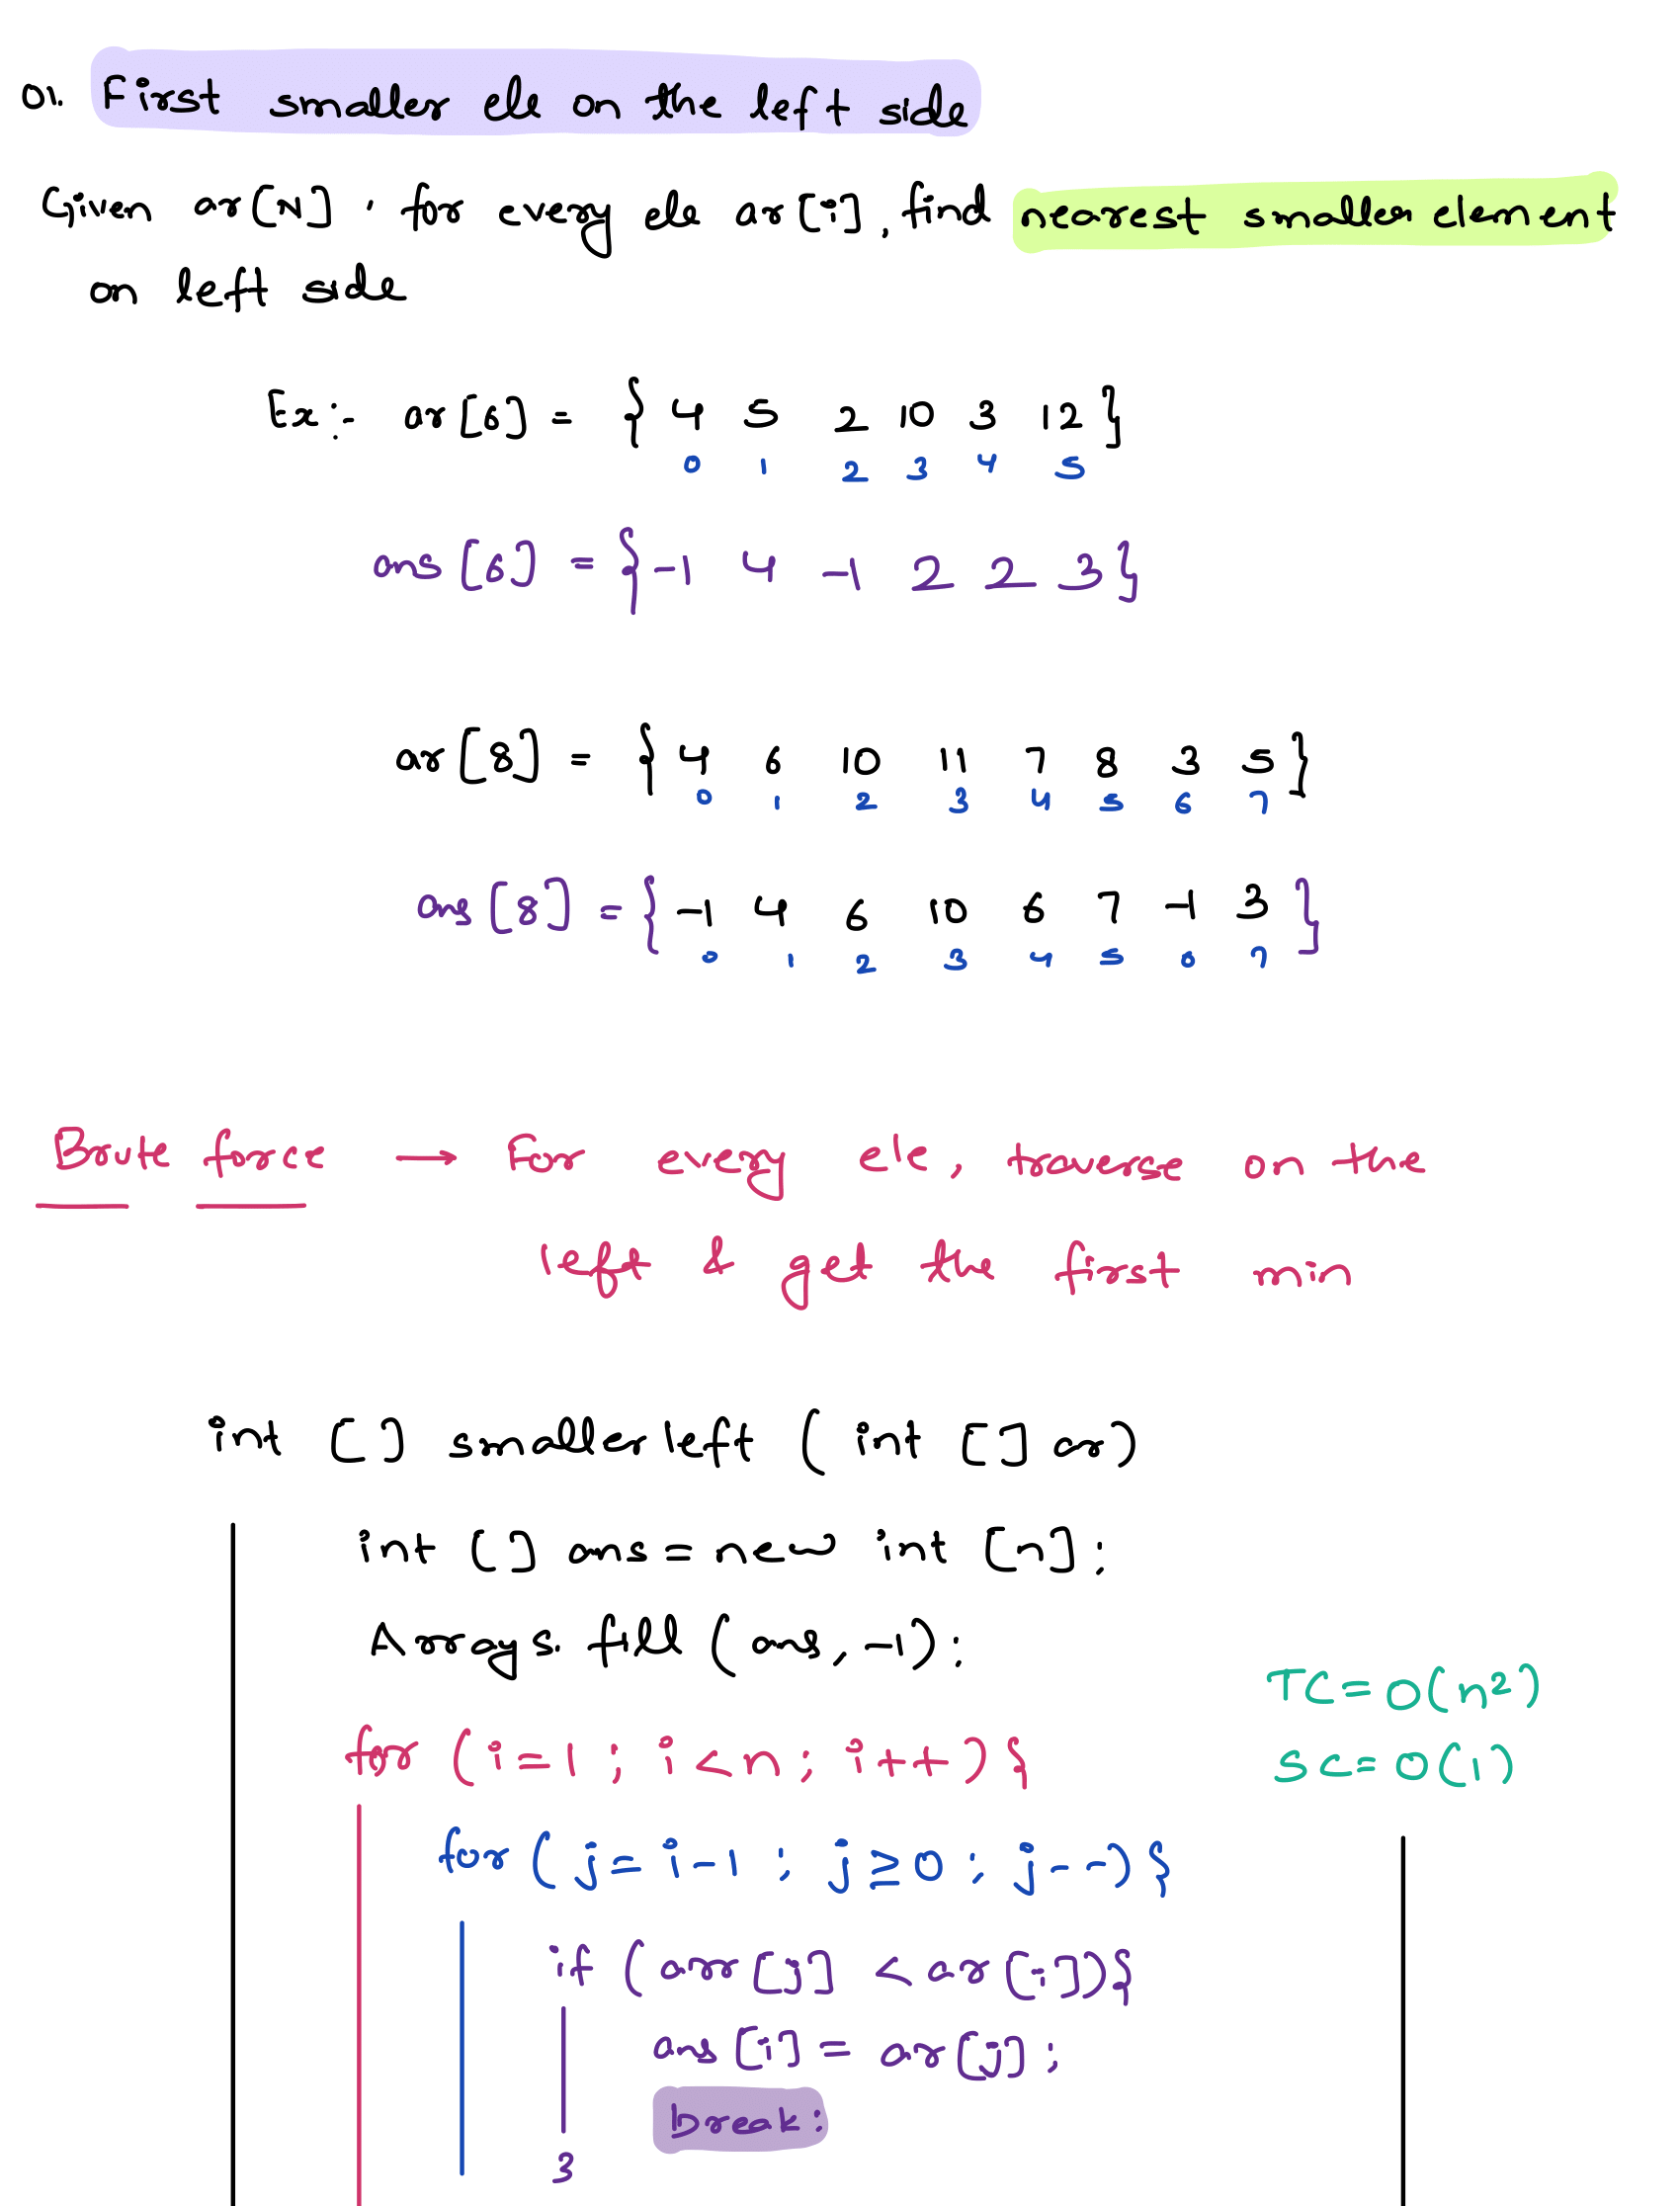 01. First smaller ele on the left side
Given ar[N] . for every ele ar[i], find nearest smaller element
on left side
Ex:- ar[6] = { 4 5 2 10 3 12 }
0 1 2 3 4 5
ans [6] = { -1 4 -1 2 2 3 }
ar[8] = { 4 6 10 11 7 8 3 5 }
0 1 2 3 4 5 6 7
ans [8] = { -1 4 6 10 6 7 -1 3 }
0 1 2 3 4 5 6 7
Brute force → For every ele, traverse on the
left & get the first min
int [] smallerleft ( int [] ar)
int [] ans = new int [n];
Arrays. fill (ans, -1);
TC = O(n²)
for (i=1 ; i<n; i++) {
SC = O(1)
for ( j= i-1 ; j≥0 ; j--) {
if (arr[j] < ar[i]){
ans [i] = ar[j];
break;
}